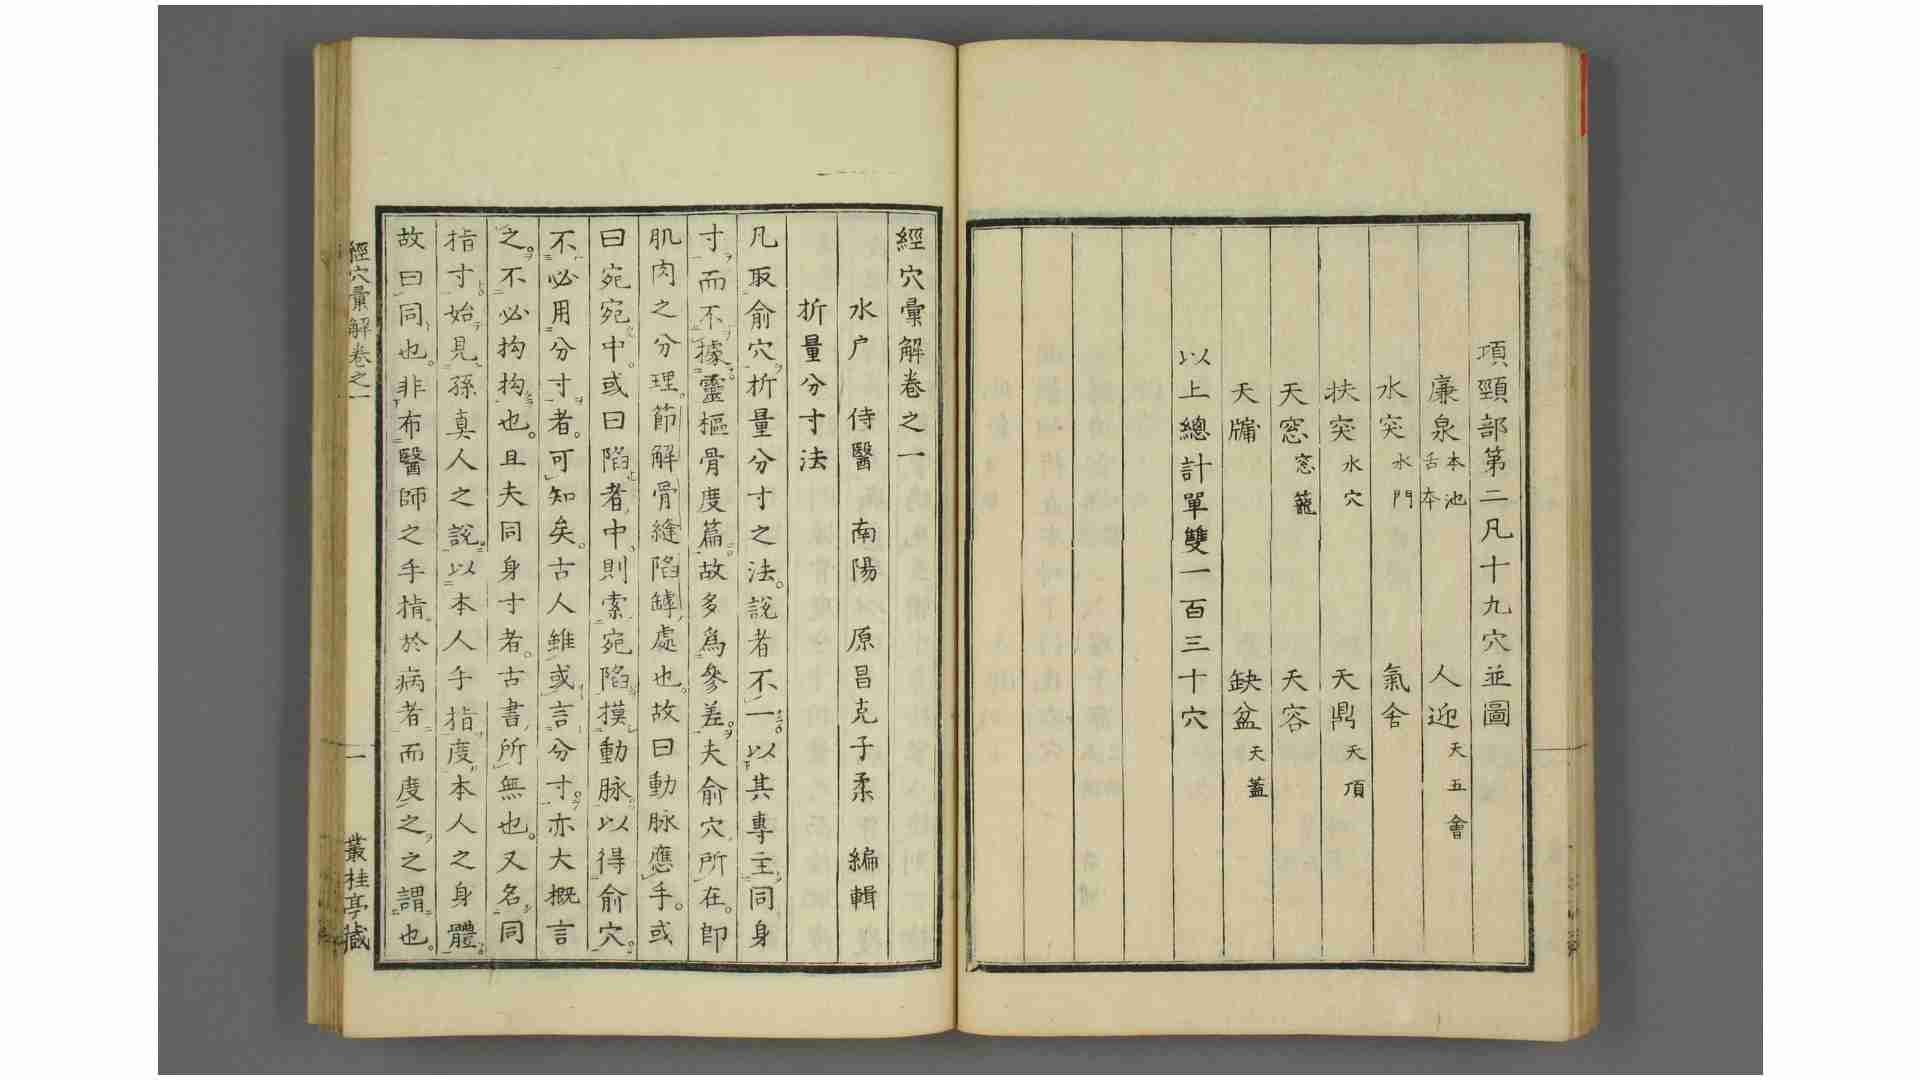 項頸部第二凡十九穴並圖
廉泉 本池 舌本 人迎 天五會
水突 水門 氣舍
扶突 水穴 天鼎 天頂
天窓 窓籠 天容
天牖 缺盆 天蓋
以上總計單雙一百三十穴
經穴彙解卷之一
水戸 侍醫 南陽 原昌克子柔 編輯
折量分寸法
凡取俞穴折量分寸之法。說者不一。以其專主同身
寸。而不據靈樞骨度篇。故多爲參差。夫俞穴所在。卽
肌肉之分理。節解骨縫陷罅處也。故曰動脉應手。或
曰宛宛中。或曰陷者中。則索宛陷摸動脉。以得俞穴。
不必用分寸者。可知矣。古人雖或言分寸。亦大概言
之。不必拘拘也。且夫同身寸者。古書所無也。又名同
指寸。始見孫真人之說。以本人手指度本人之身體。
故曰同也。非布醫師之手指於病者而度之之謂也。
經穴彙解卷之一
一
叢桂亭藏